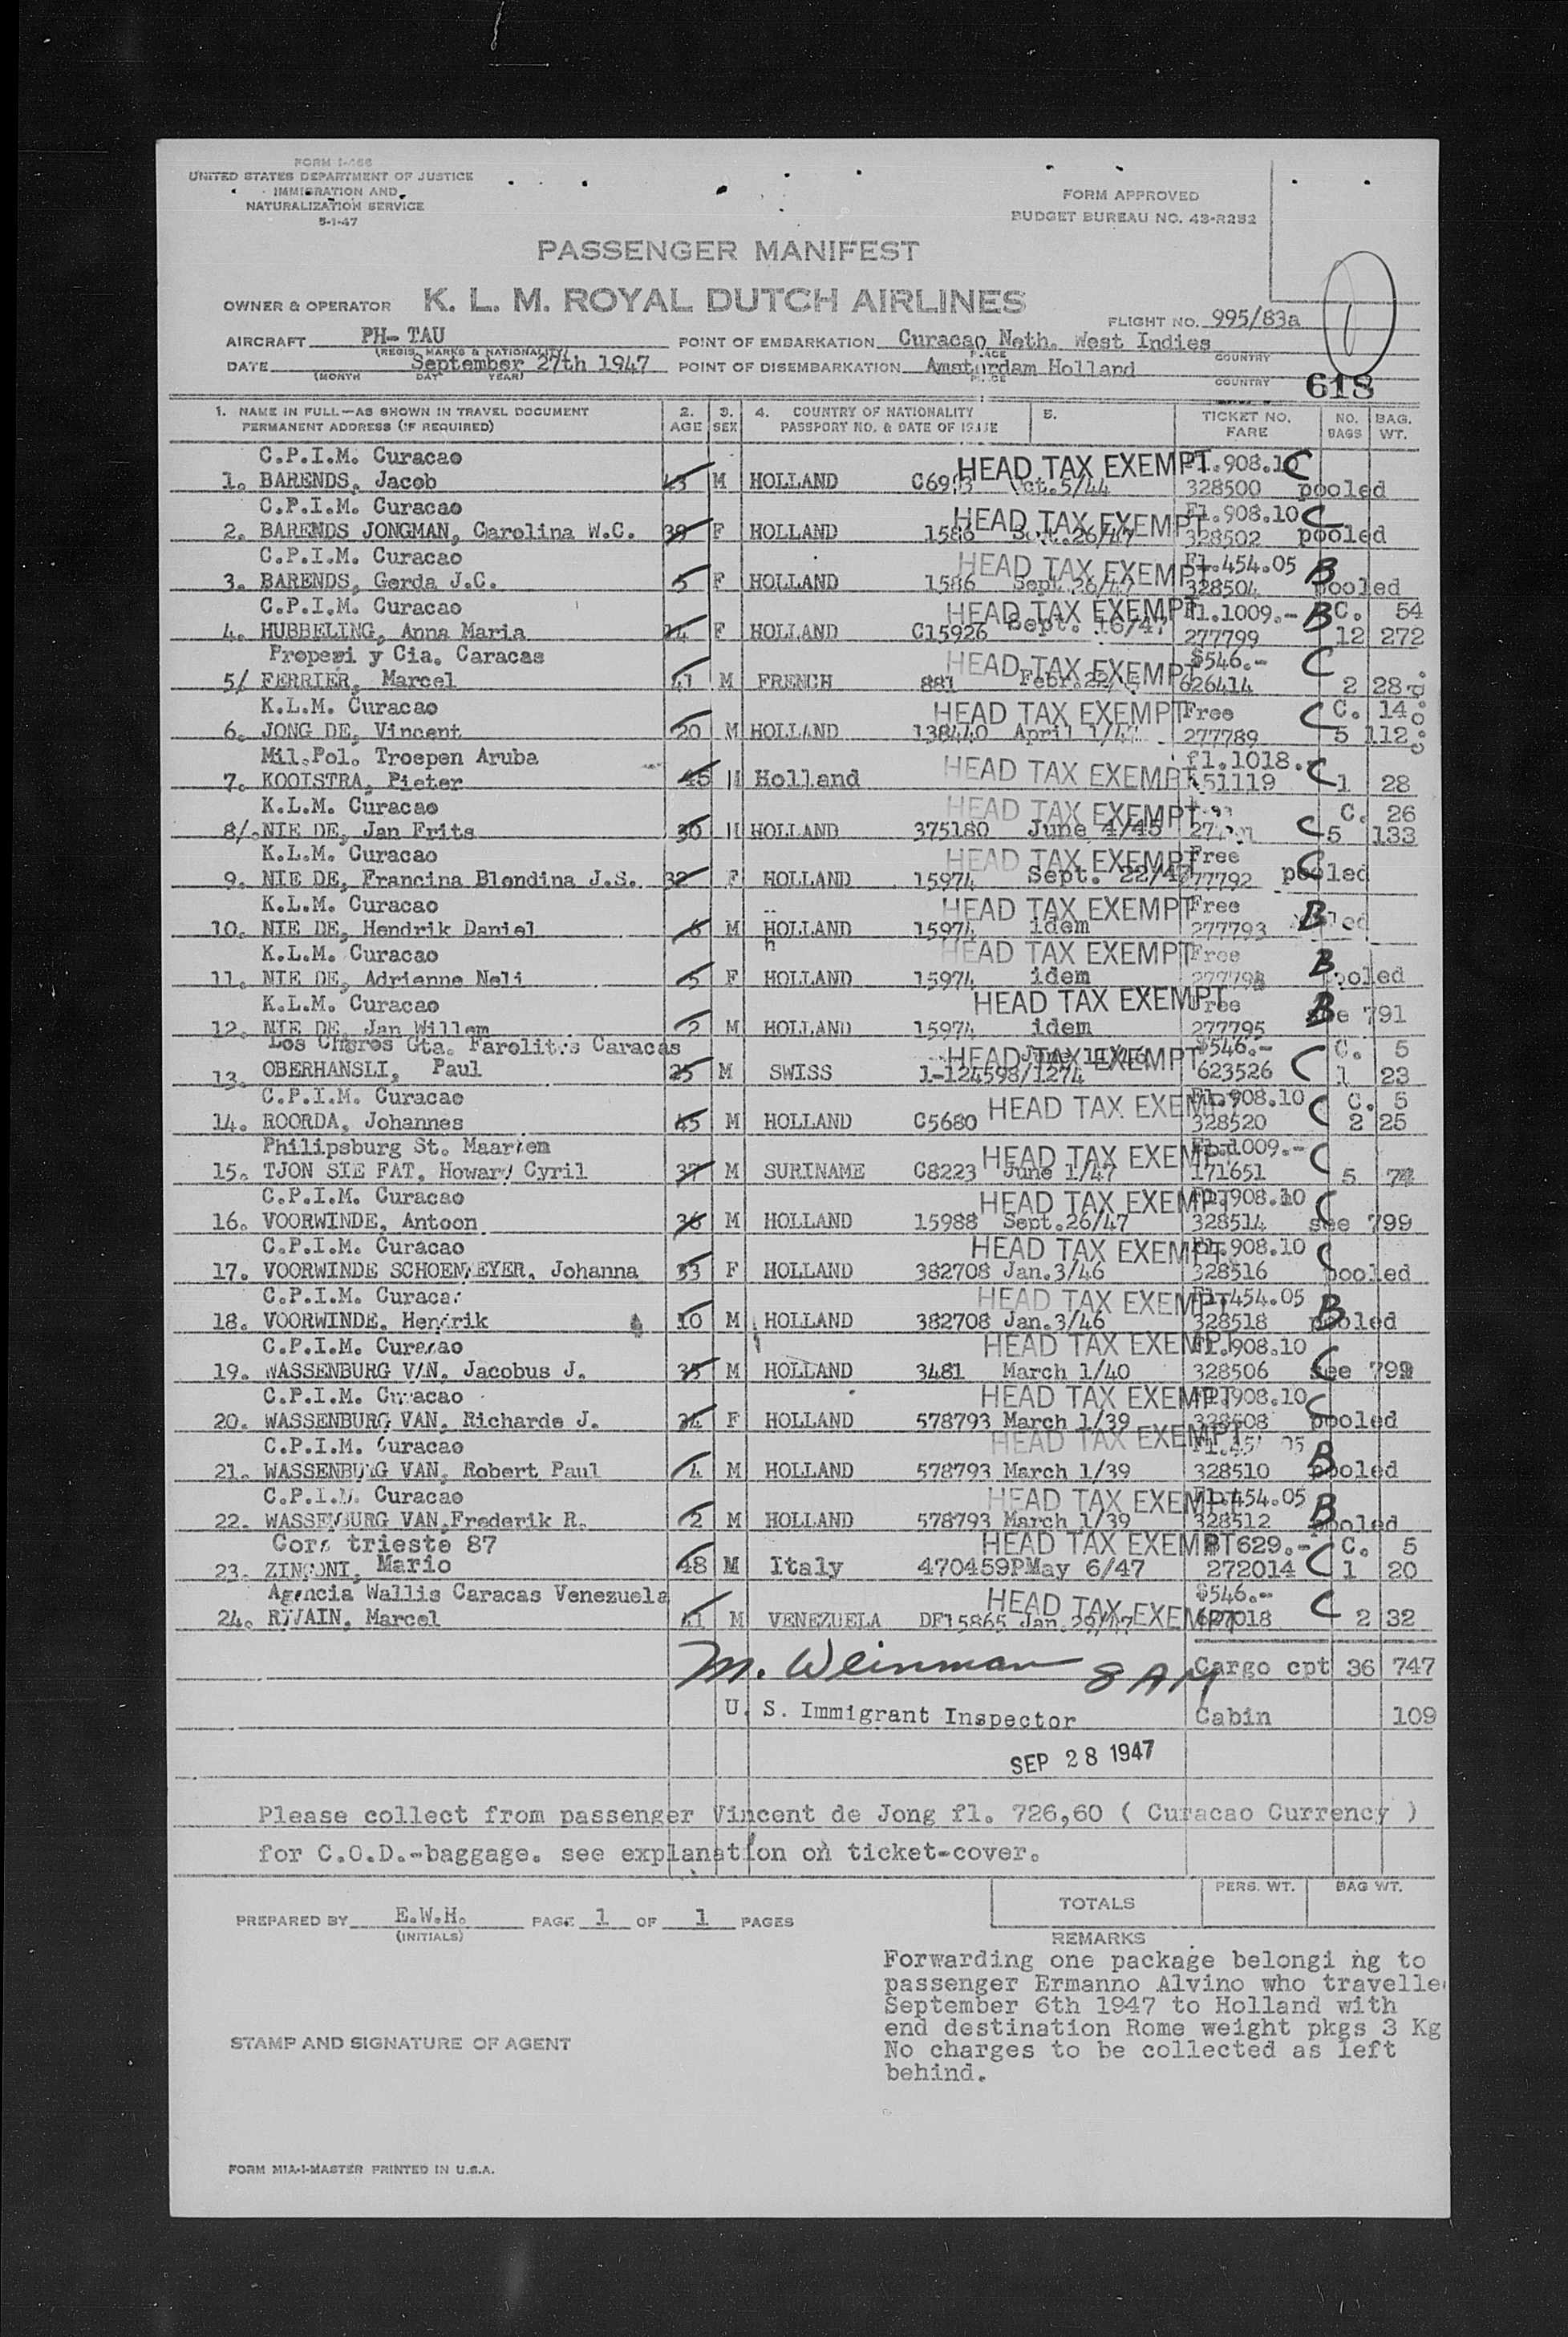 FORM I-466
UNITED STATES DEPARTMENT OF JUSTICE
IMMIGRATION AND
NATURALIZATION SERVICE
5-1-47
FORM APPROVED
BUDGET BUREAU NO. 43-R252
PASSENGER MANIFEST
OWNER & OPERATOR K. L. M. ROYAL DUTCH AIRLINES
FLIGHT NO. 995/83a
AIRCRAFT PH-TAU POINT OF EMBARKATION Curacao Neth. West Indies
(REGIS. MARKS & NATIONALITY) PLACE COUNTRY
DATE September 27th 1947 POINT OF DISEMBARKATION Amsterdam Holland
(MONTH DAY YEAR) PLACE COUNTRY
618
1. NAME IN FULL—AS SHOWN IN TRAVEL DOCUMENT 2. 3. 4. COUNTRY OF NATIONALITY 5. TICKET NO. NO. BAG.
PERMANENT ADDRESS (IF REQUIRED) AGE SEX PASSPORT NO. & DATE OF ISSUE FARE BAGS WT.
C.P.I.M. Curacao HEAD TAX EXEMPT Fl.908.10 C
1. BARENDS, Jacob 43 M HOLLAND Oct.5/44 328500 pooled
C.P.I.M. Curacao HEAD TAX EXEMPT Fl.908.10 C
2. BARENDS JONGMAN, Carolina W.C. 39 F HOLLAND 1586 Sept.26/47 328502 pooled
C.P.I.M. Curacao HEAD TAX EXEMPT Fl.454.05 B
3. BARENDS, Gerda J.C. 5 F HOLLAND 1586 Sept.26/47 328504 pooled
C.P.I.M. Curacao HEAD TAX EXEMPT Fl.1009.- B C. 54
4. HUBBELING, Anna Maria F HOLLAND C15926 Sept. 16/47 277799 12 272
y Cia. Caracas HEAD TAX EXEMPT $546.- C
5/ FERRIER, Marcel 41 M FRENCH 881 626414 2 28
K.L.M. Curacao HEAD TAX EXEMPT Free C C. 14
6. JONG DE, Vincent 20 M HOLLAND 138440 April 1/47 277789 5 112
Mil.Pol. Troepen Aruba HEAD TAX EXEMPT fl.1018.- C
7. KOOISTRA, Pieter 45 M Holland 51119 1 28
K.L.M. Curacao HEAD TAX EXEMPT C. 26
8/. NIE DE, Jan Frits 30 M HOLLAND 375180 June 4/45 C 5 133
K.L.M. Curacao HEAD TAX EXEMPT Free C
9. NIE DE, Francina Blondina J.S. 32 F HOLLAND 15974 Sept. 22/47 277792 pooled
K.L.M. Curacao HEAD TAX EXEMPT Free B
10. NIE DE, Hendrik Daniel 6 M HOLLAND 15974 idem 277793
K.L.M. Curacao h HEAD TAX EXEMPT Free B
11. NIE DE, Adrienne Neli 5 F HOLLAND 15974 idem pooled
K.L.M. Curacao HEAD TAX EXEMPT Free B
12. NIE DE, Jan Willem 2 M HOLLAND 15974 idem 277795 see 791
Los Gta. Caracas HEAD TAX EXEMPT $546.- C. 5
13. OBERHANSLI, Paul 25 M SWISS 1-124598/1274 623526 C 1 23
C.P.I.M. Curacao HEAD TAX EXEMPT Fl.908.10 C C. 5
14. ROORDA, Johannes 45 M HOLLAND C5680 328520 2 25
Philipsburg St. Maarten HEAD TAX EXEMPT Fl.1009.- C
15. TJON SIE FAT, Howard Cyril 37 M SURINAME C8223 June 1/47 171651 5 74
C.P.I.M. Curacao HEAD TAX EXEMPT Fl.908.10 C
16. VOORWINDE, Antoon 36 M HOLLAND 15988 Sept.26/47 328514 see 799
C.P.I.M. Curacao HEAD TAX EXEMPT Fl.908.10 C
17. VOORWINDE SCHOENMEYER, Johanna 33 F HOLLAND 382708 Jan.3/46 328516 pooled
C.P.I.M. Curacao HEAD TAX EXEMPT Fl.454.05 B
18. VOORWINDE, Hendrik 10 M HOLLAND 382708 Jan.3/46 328518 pooled
C.P.I.M. Curacao HEAD TAX EXEMPT Fl.908.10 C
19. WASSENBURG VAN, Jacobus J. 35 M HOLLAND 3481 March 1/40 328506 see 799
C.P.I.M. Curacao HEAD TAX EXEMPT Fl.908.10 C
20. WASSENBURG VAN, Richarde J. 34 F HOLLAND 578793 March 1/39 328508 pooled
C.P.I.M. Curacao HEAD TAX EXEMPT Fl.454.05 B
21. WASSENBURG VAN, Robert Paul 4 M HOLLAND 578793 March 1/39 328510 pooled
C.P.I.M. Curacao HEAD TAX EXEMPT Fl.454.05 B
22. WASSENBURG VAN,Frederik R. 2 M HOLLAND 578793 March 1/39 328512 pooled
trieste 87 HEAD TAX EXEMPT 629.- C C. 5
23. ZINCONI, Mario 48 M Italy 470459PMay 6/47 272014 1 20
Agencia Wallis Caracas Venezuela HEAD TAX EXEMPT $546.- C
24. Marcel 41 M VENEZUELA DF15865 Jan.29/47 627018 2 32
M. Weinman 8 AM Cargo cpt 36 747
U. S. Immigrant Inspector Cabin 109
SEP 28 1947
Please collect from passenger Vincent de Jong fl. 726,60 ( Curacao Currency )
for C.O.D.-baggage. see explanation on ticket-cover.
PERS. WT. BAG WT.
TOTALS
PREPARED BY E.W.H. PAGE 1 OF 1 PAGES
(INITIALS)
REMARKS
Forwarding one package belongi ng to
passenger Ermanno Alvino who travelle
September 6th 1947 to Holland with
end destination Rome weight pkgs 3 Kg
No charges to be collected as left
behind.
STAMP AND SIGNATURE OF AGENT
FORM MIA-1-MASTER PRINTED IN U.S.A.